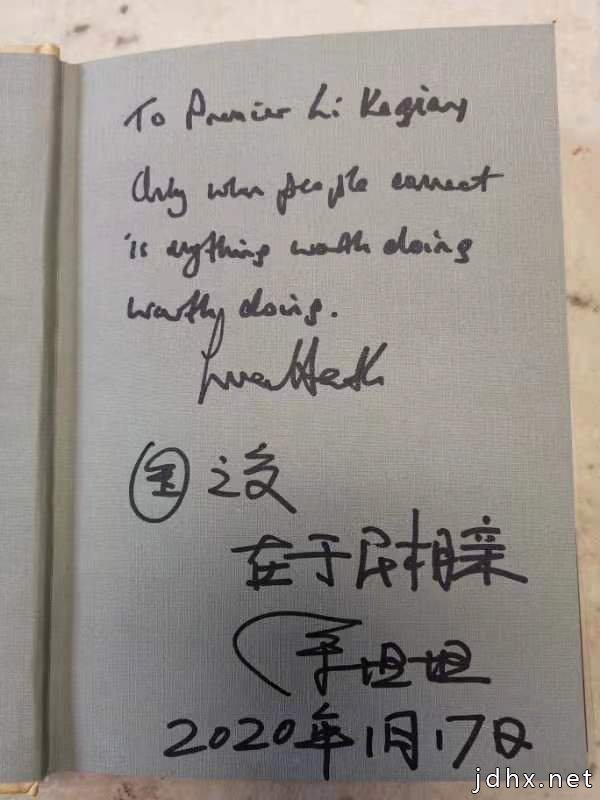 To Premier Li Keqiang
Only when people connect
is anything worth doing
worth doing.
国之交
在于民相亲
李坦坦
2020年1月17日
jdhx.net